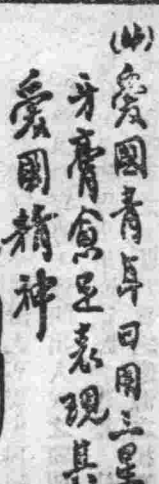 (卅)愛國青年日用三星
牙膏愈足表現其
愛國精神